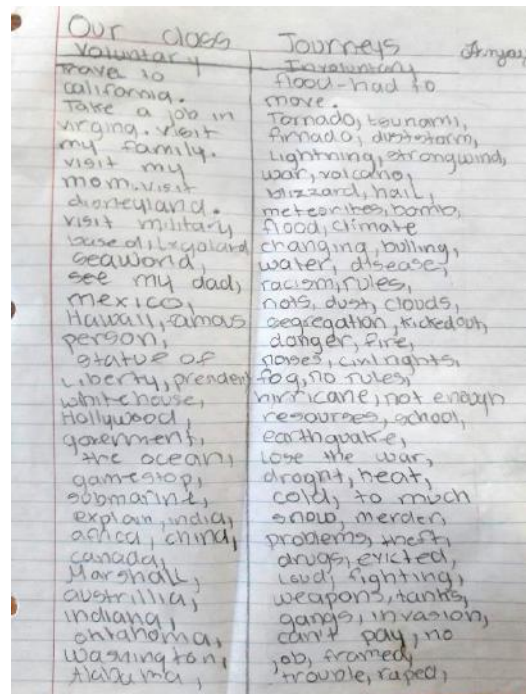 Our class Journeys
Voluntary
travel to
california.
Take a job in
virging. visit
my family.
visit my
mom. visit
disneyland.
visit military
base
seaworld,
see my dad,
mexico,
Hawaii, famas
person,
statue of
Liberty, president
whitehouse,
Hollywood,
government,
the ocean,
gamestop,
submarine,
explain, india,
africa, china,
canada,
Marshall,
austrillia,
indiana,
washington,
Alabama,
Involuntary
flood-had to
move.
Tornado, tsunami,
firnado, duststorm,
Lightning, strongwind,
war, volcano,
blizzard, hail,
meteorites, bomb,
flood, climate
changing, bulling,
water, disease,
racism, rules,
dust, clouds,
segregation, kickedout,
danger, fire,
civil rights,
fog, no rules,
hirricane, not enough
resourses, school,
earthquake,
Lose the war,
heat,
cold, to much
snow, merder,
problems, theft,
drugs, evicted,
Loud, fighting,
weapons, tanks,
gangs, invasion,
can't pay, no
job, framed,
trouble, raped,